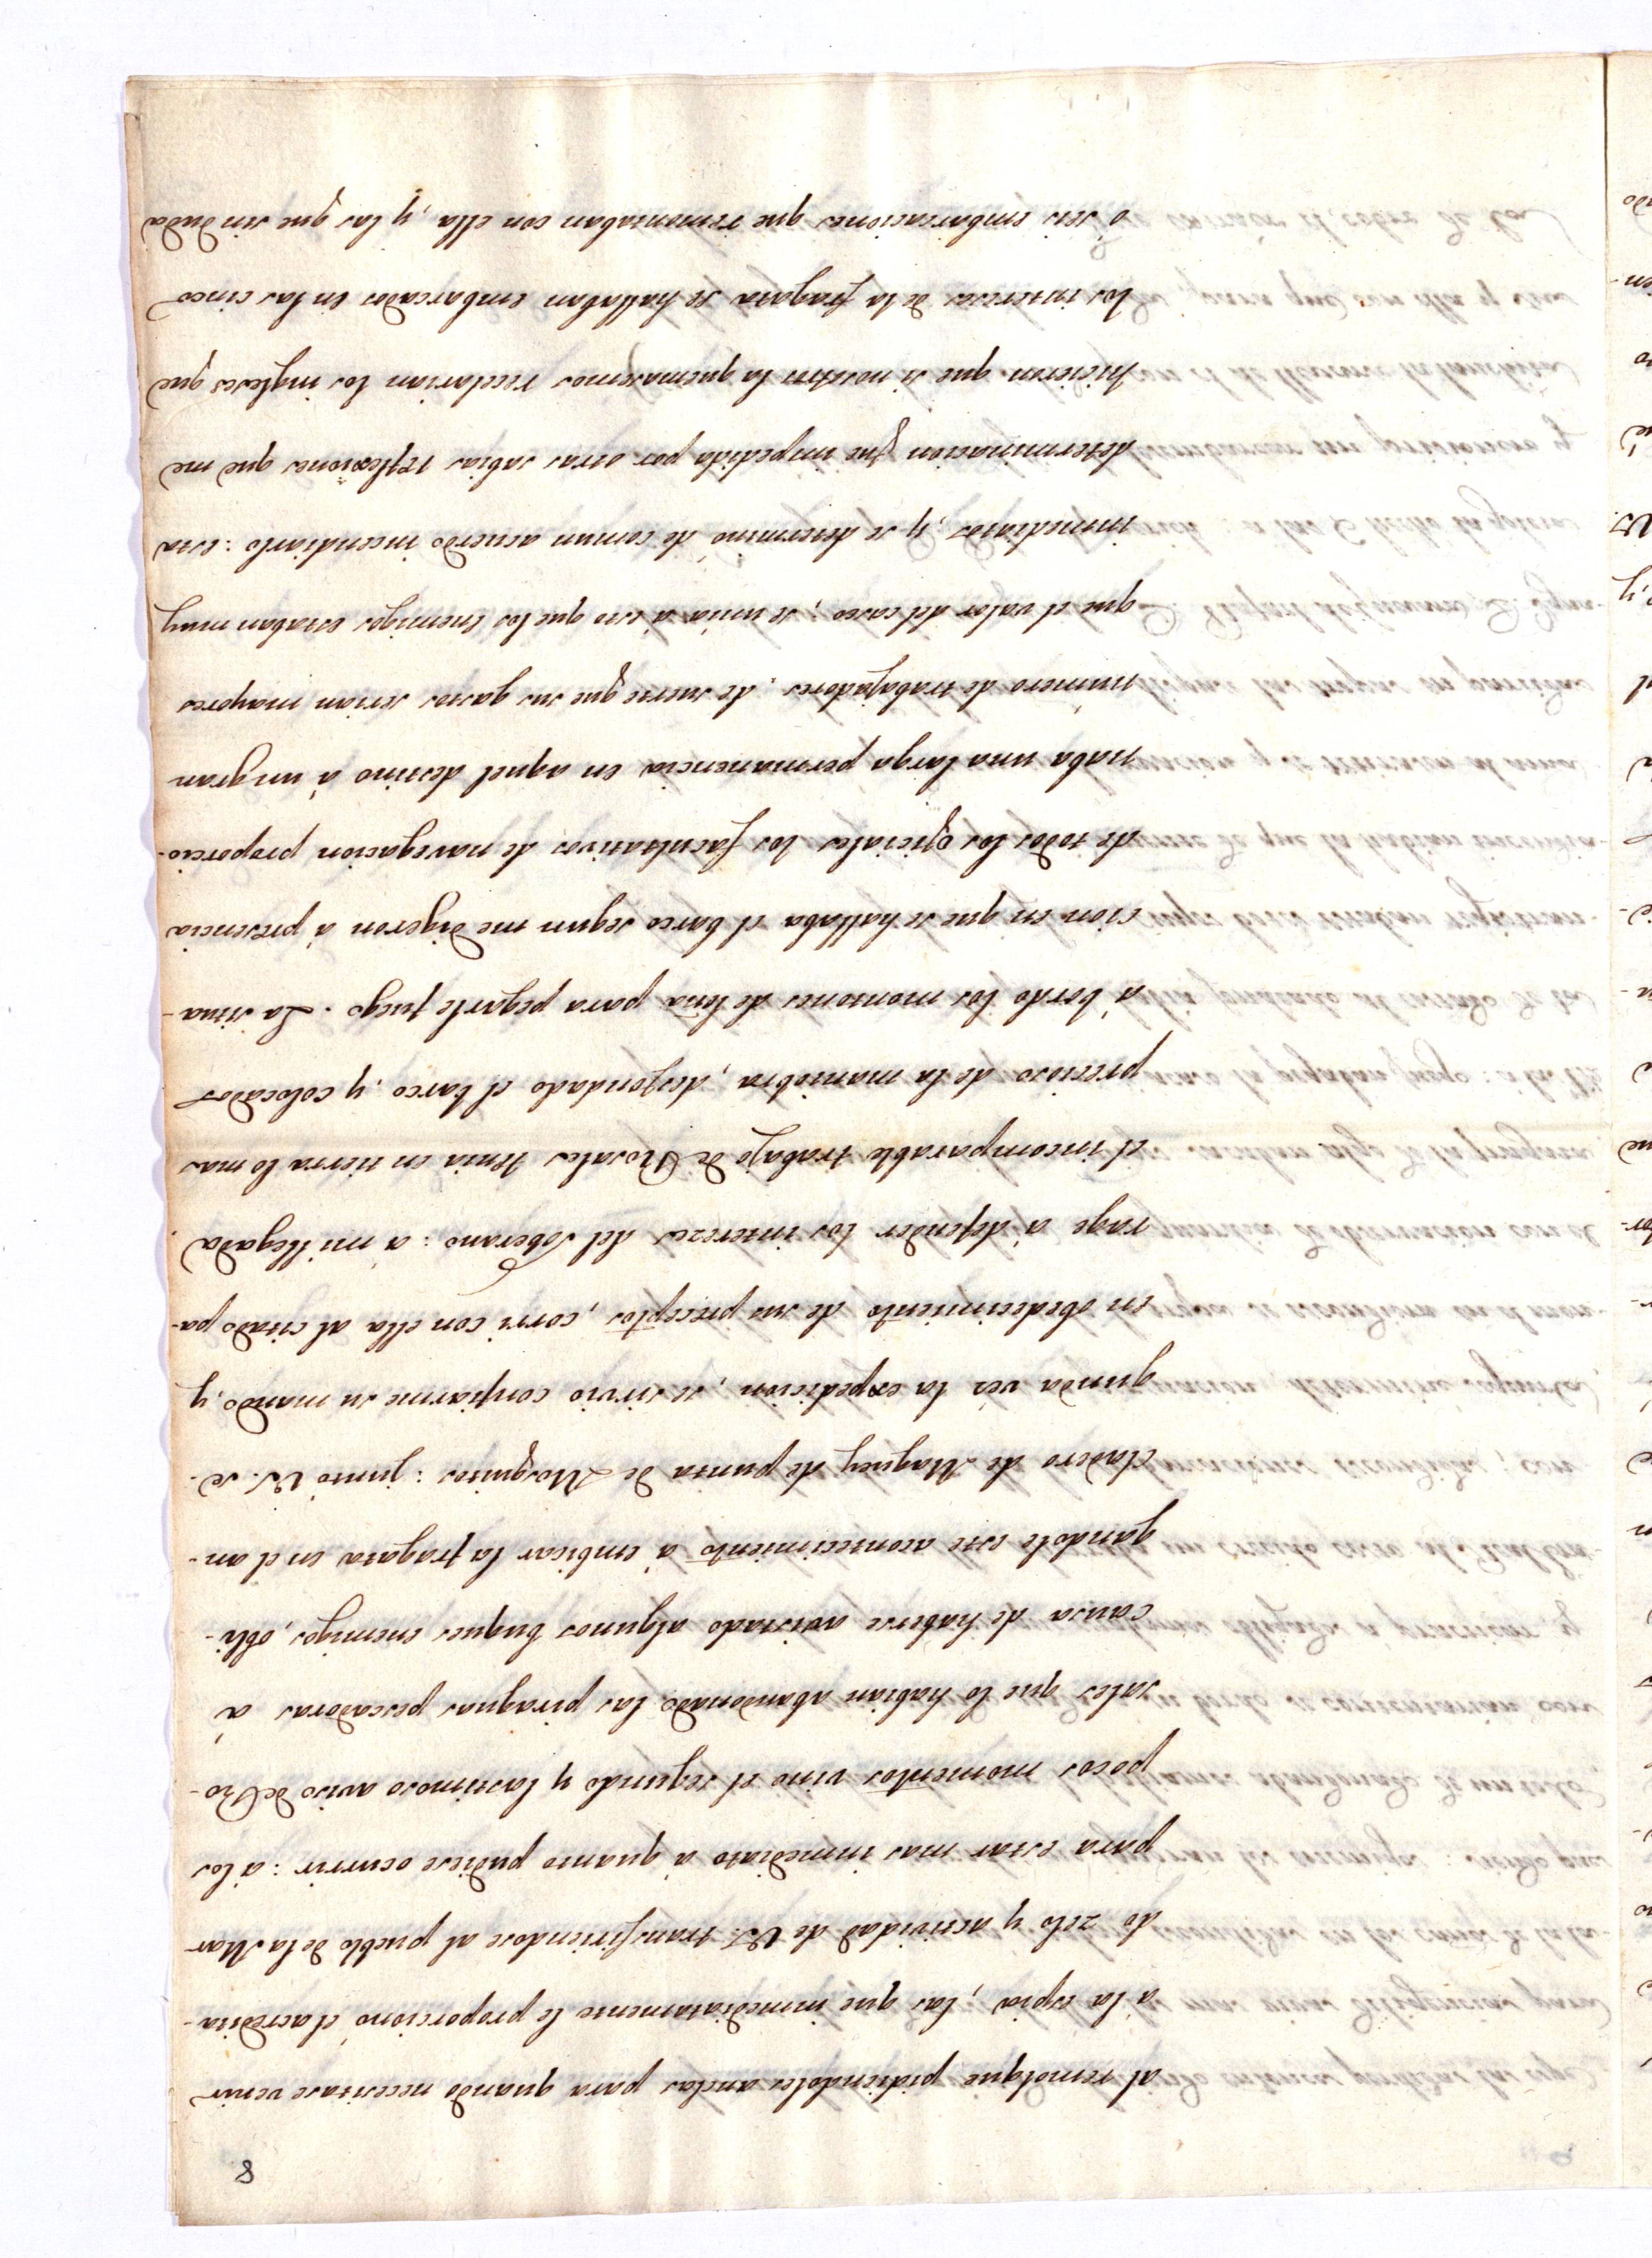 8
al remolque pidiendoles anclas para quando necesitase venir
á la espia, las que inmediatamente le proporcionó el acredita-
do zelo y actividad de VS. transfiriendose al pueblo de la Mar
para estar mas inmediato á quanto pudiese ocurrir: á los
pocos momentos vino el segundo y lastimoso aviso de Ro-
sales que lo habian abandonado las piraguas pescadoras á
causa de haberse avistado algunos buques enemigos, obli-
gandole este acontecimiento á embicar la fragata en el an-
cladero de Maguey de punta de Mosquitos: juntó VS. se-
gunda vez la expedicion, se sirvio confiarme su mando, y
en obedecimiento de sus preceptos, corrí con ella al citado pa-
rage á defender los intereses del Soberano: á mi llegada
el incomparable trabajo de Rosales tenia en tierra lo mas
precioso de la maniobra, desfondado el barco, y colocados
á bordo los montones de leña para pegarle fuego. La situa-
cion en que se hallaba el barco segun me digeron á presencia
de todos los oficiales los facultativos de navegacion proporcio-
naba una larga permanencia en aquel destino á un gran
número de trabajadores; de suerte que sus gastos serian mayores
que el valor del casco; se unia á esto que los enemigos estaban muy
inmediatos, y se determinó de comun acuerdo incendiarlo: esta
determinacion fue impedida por otras sabias reflexiones que me
hicieron que si nosotros la quemasemos recelarian los ingleses que
los intereses de la fragata se hallaban embarcados en las cinco
ó seis embarcaciones que remontaban con ella, y las que sin duda